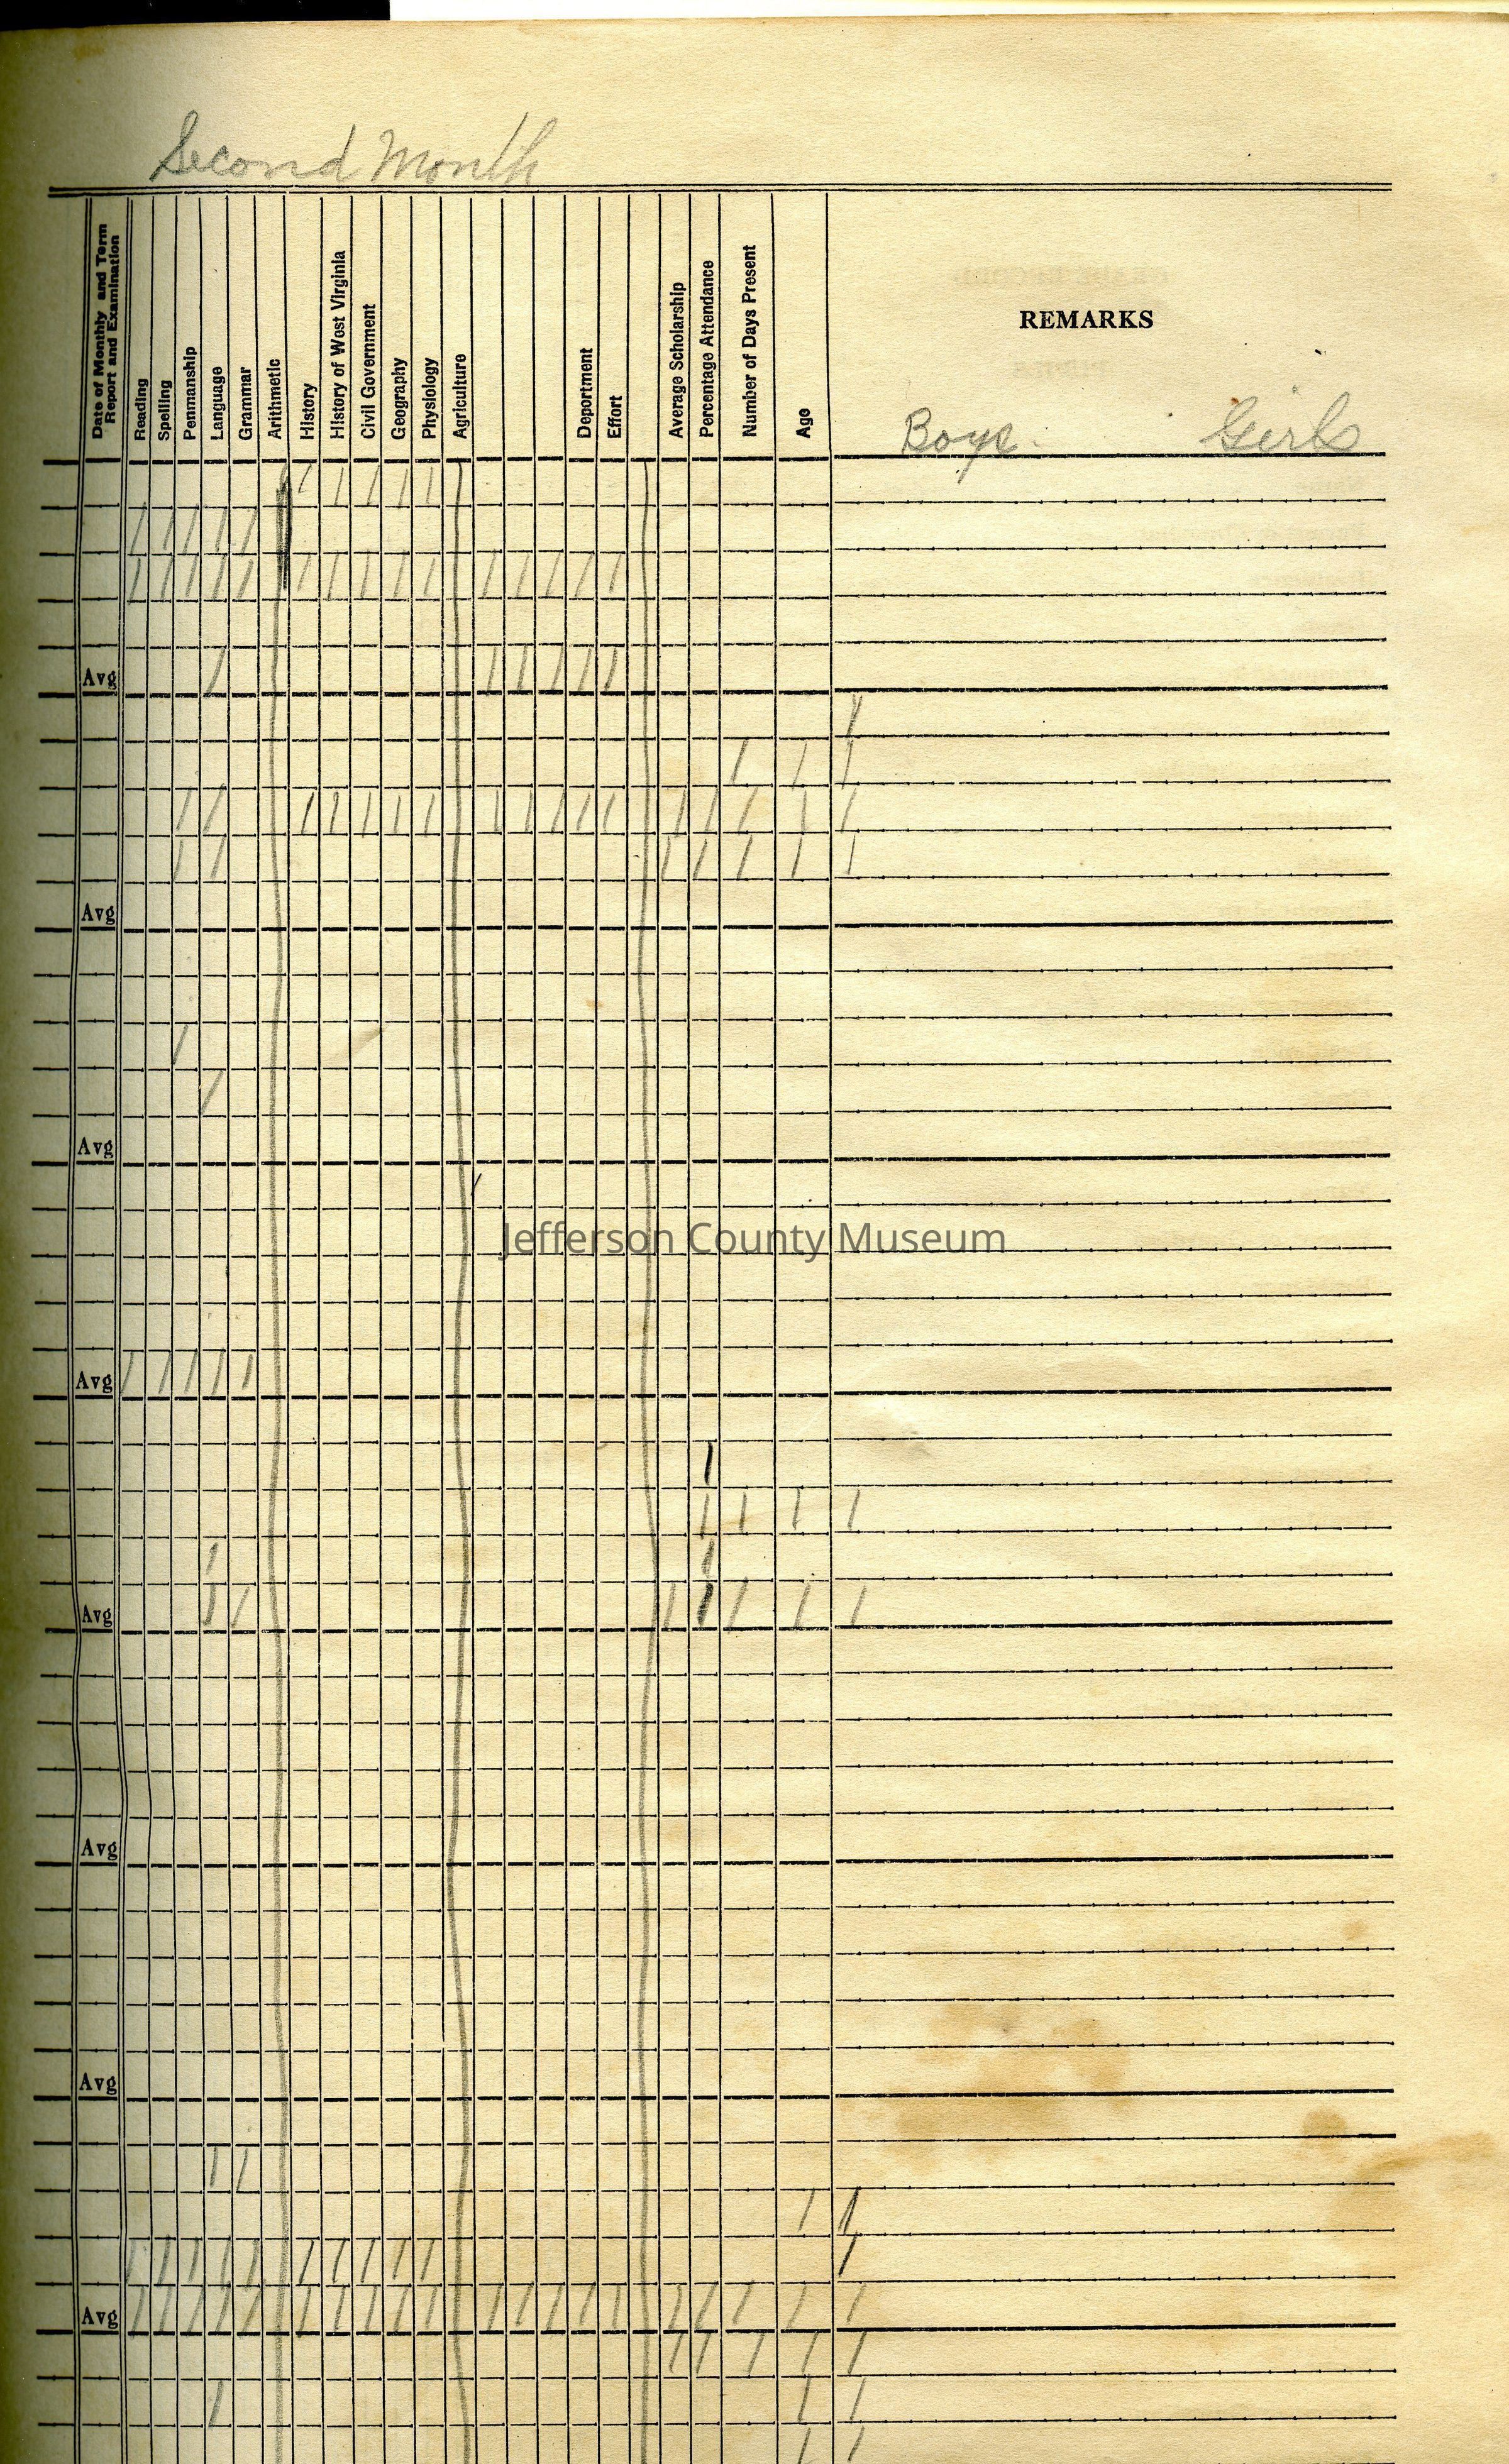 Second Month
Date of Monthly and Term
Report and Examination
Reading
Spelling
Penmanship
Language
Grammar
Arithmetic
History
History of West Virginia
Civil Government
Geography
Physiology
Agriculture
Deportment
Effort
Average Scholarship
Percentage Attendance
Number of Days Present
Age
REMARKS
Boys. Girls
Avg
Avg
Avg
Jefferson County Museum
Avg
Avg
Avg
Avg
Avg